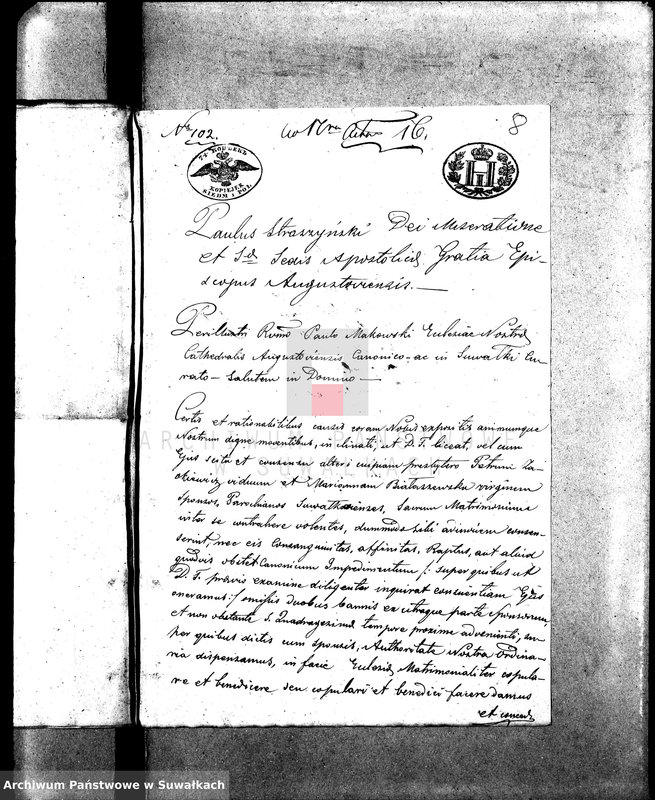 Nr 102.
Akta 16.
8
7½ КОПѢЕКЪ
KOPIEJEK
SIEDM I PÓŁ
H
Paulus Straszyński Dei Miseratione
et Sae Sedis Apostolicae Gratia Epi-
scopus Augustoviensis.—
Perillustri Rvmo Paulo Makowski Eclesiae Nostrae
Cathedralis Augustoviensis Canonico ac in Suwałki Cu-
rato – Salutem in Domino —
Certis et rationabilibus causis coram Nobis expositis animumque
Nostrum digne moventibus, inclinati, ut D. T. liceat, vel cum
Ejus scitu et consensu alteri cuipiam presbytero Petrum
viduum et Mariannam Białaszewska virginem
Sponsos, Parochianos Suwałkenses, Sacrum Matrimonium
inter se contrahere volentes, dummodo sibi adinvicem consen-
serint, nec eis Consanguinitas, affinitas, Raptus, aut aliud
quodvis obstet Canonicum Impedimentum /: super quibus ut
D. T. praevio examine diligenter inquirat conscientiam Ejus
oneramus :/ omissis duobus bannis ex utraque parte Sponsorum
et non obstante S. Quadragesimae tempore proxime advenienti, su-
per quibus dictis cum sponsis, Authoritate Nostra Ordina-
ria dispensamus, in facie Eclesiae Matrimonialiter copula-
re et benedicere seu copulari et benedici facere damus
et conced
ARCHIWUM PAŃSTWOWE
W SUWAŁKACH
Archiwum Państwowe w Suwałkach